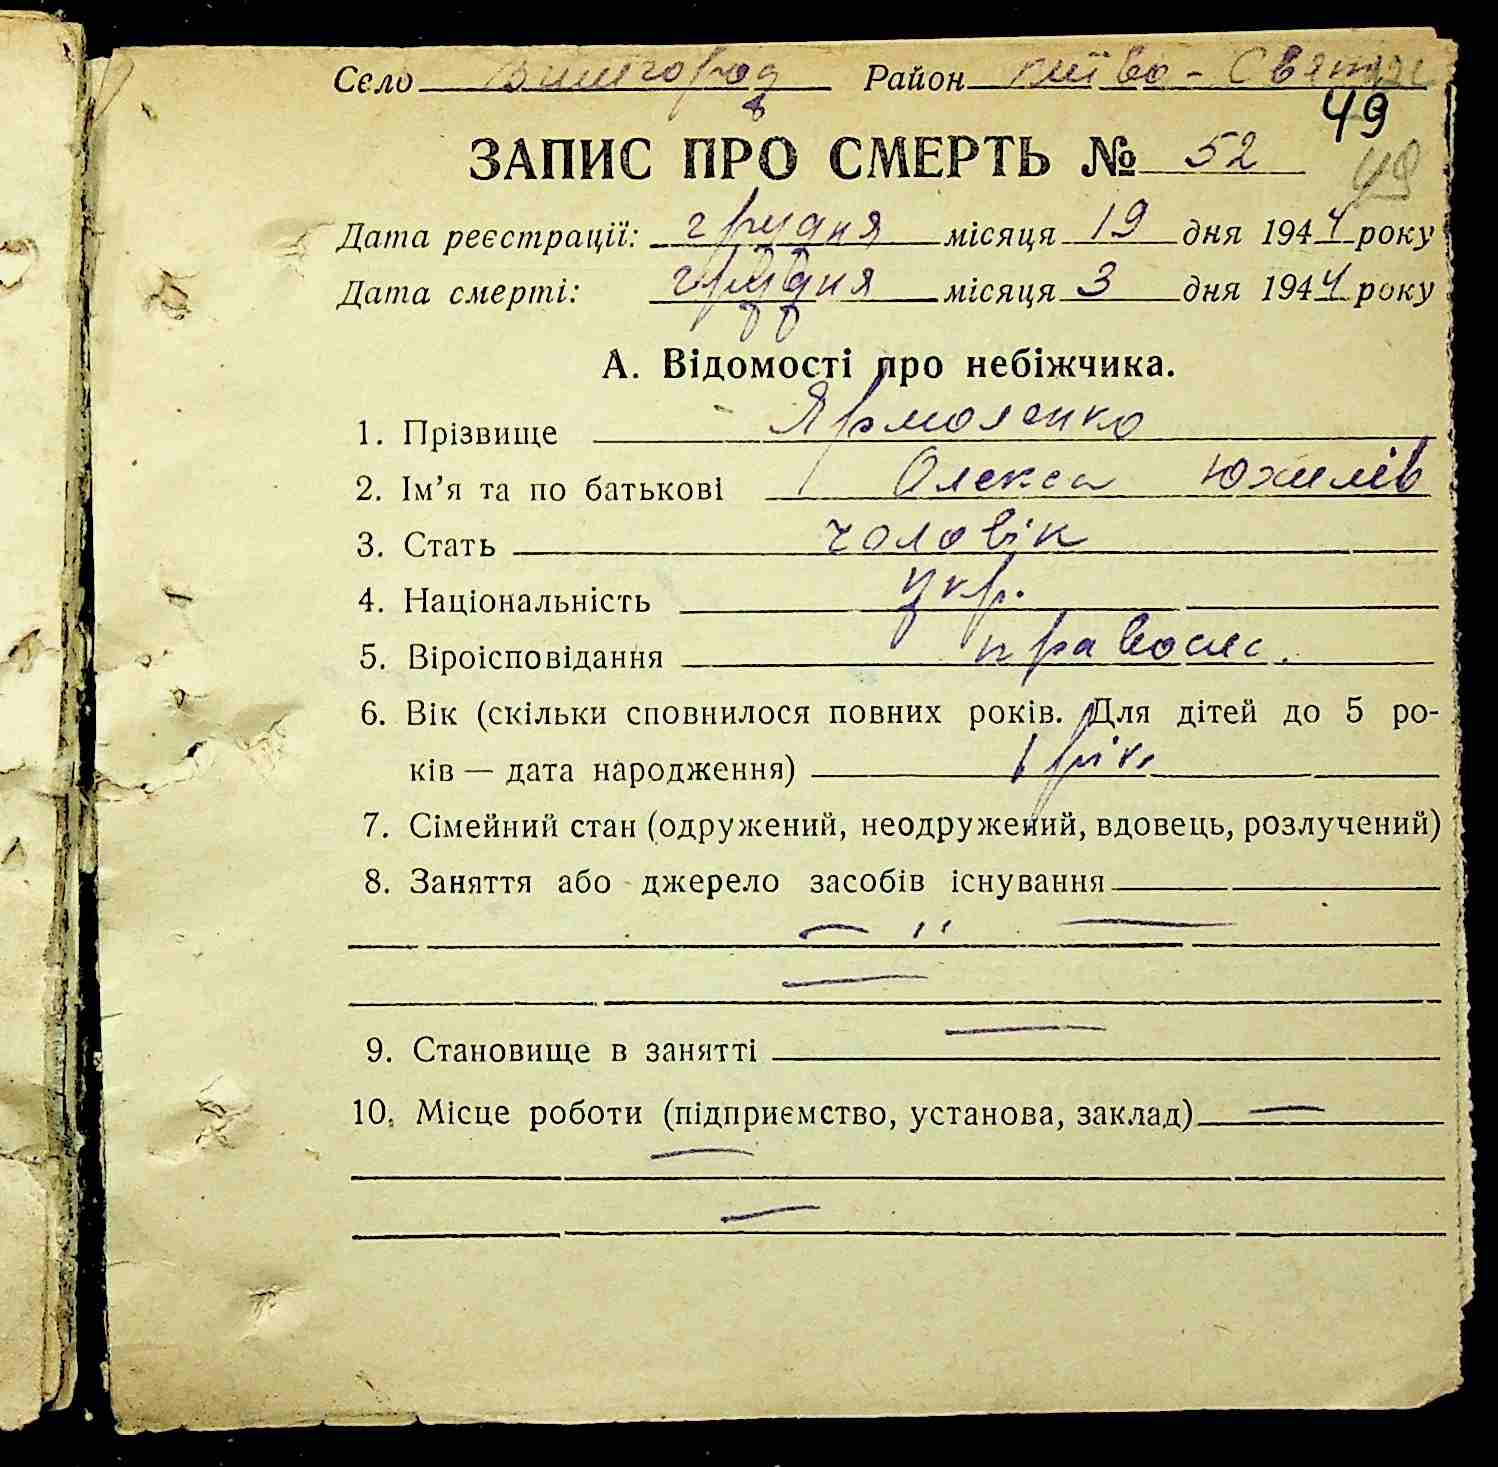 Село Вишгород Район Києво-Святош
49
ЗАПИС ПРО СМЕРТЬ № 52
49
Дата реєстрації: грудня місяця 19 дня 1944 року
Дата смерті: грудня місяця 3 дня 1944 року
А. Відомості про небіжчика.
1. Прізвище Ярмоленко
2. Ім'я та по батькові Олекса Юхимів
3. Стать чоловік
4. Національність укр.
5. Віроісповідання правосл.
6. Вік (скільки сповнилося повних років. Для дітей до 5 ро-
ків — дата народження) 1 рік.
7. Сімейний стан (одружений, неодружений, вдовець, розлучений)
8. Заняття або джерело засобів існування
— " —
9. Становище в занятті —
10. Місце роботи (підприємство, установа, заклад) —